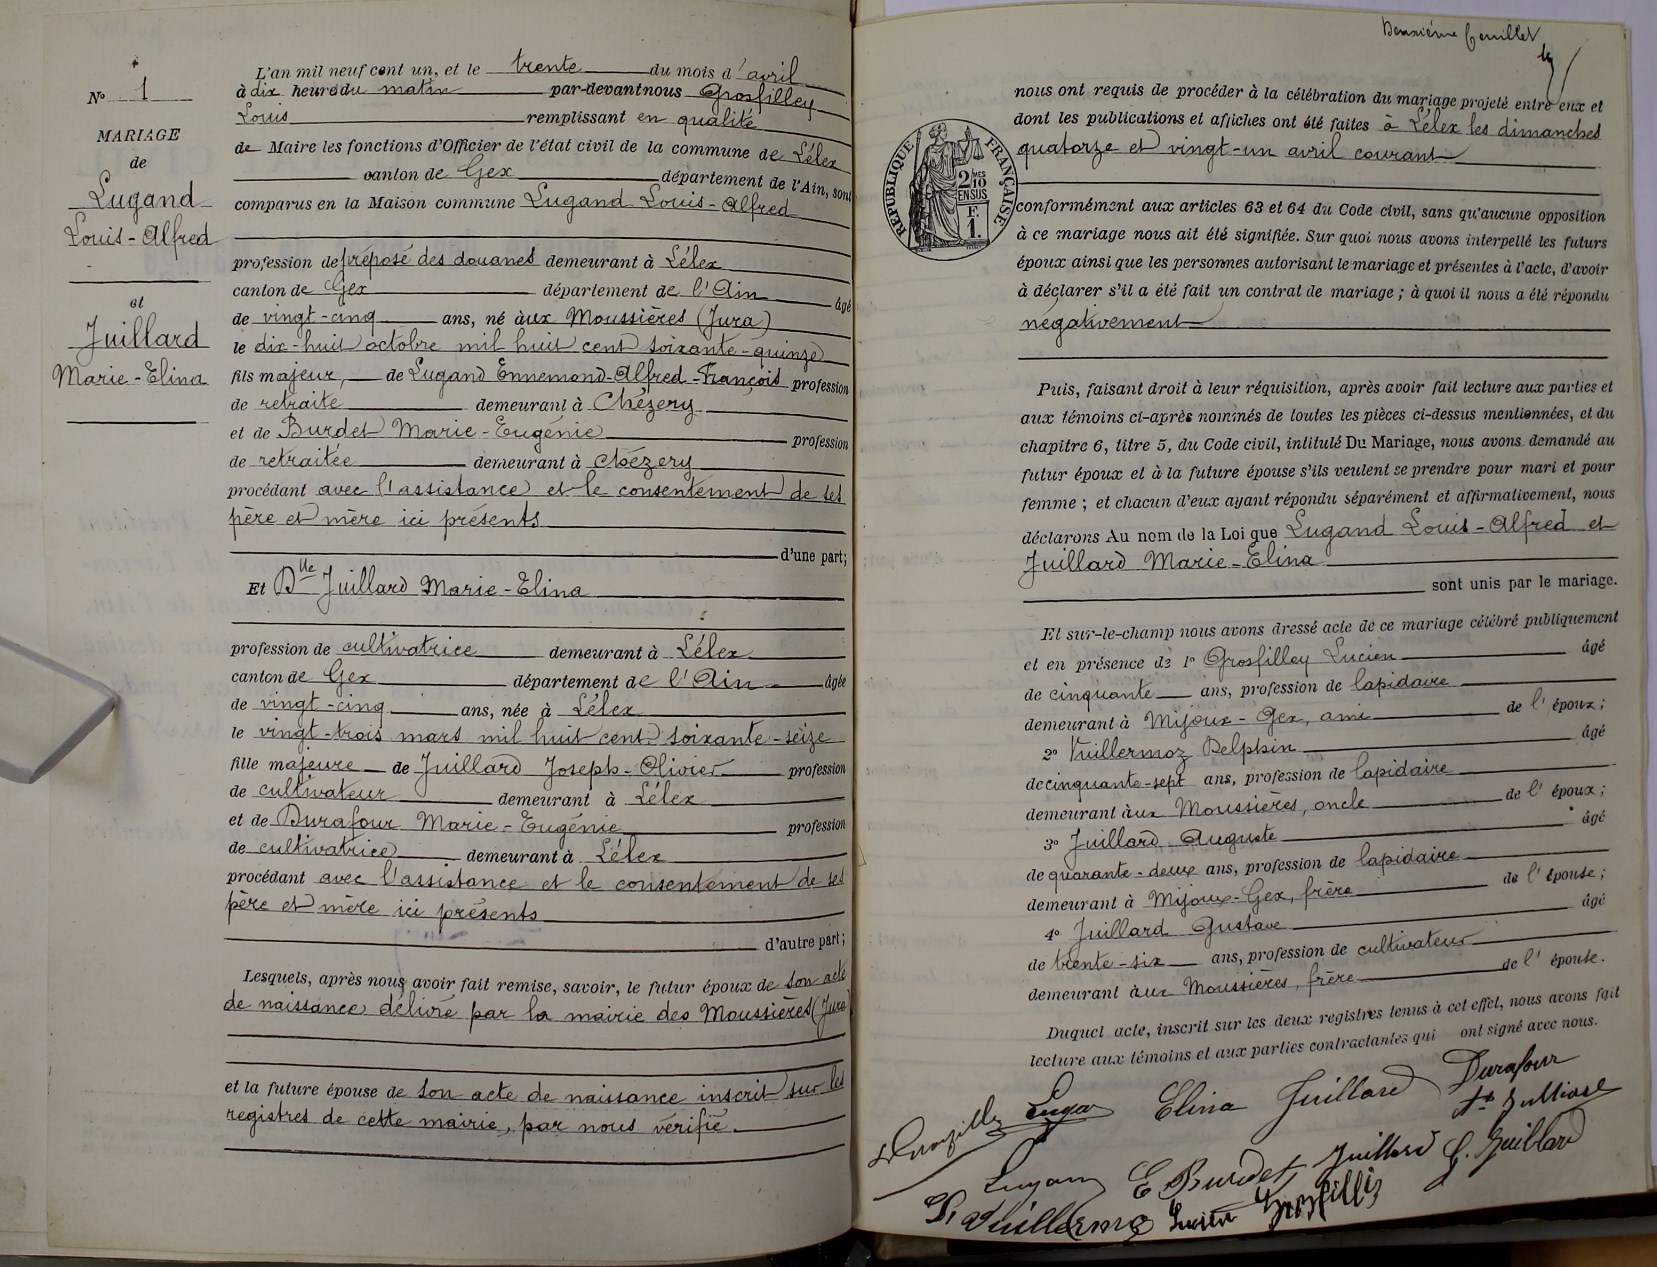 N° 1
MARIAGE
de
Lugand
Louis-Alfred
et
Juillard
Marie-Elina
L'an mil neuf cent un, et le trente du mois d'avril
à dix heure du matin par-devant nous Grosfilley
Louis remplissant en qualité
de Maire les fonctions d'Officier de l'état civil de la commune de Lélex
canton de Gex département de l'Ain, sont
comparus en la Maison commune Lugand Louis-Alfred
profession de préposé des douanes demeurant à Lélex
canton de Gex département de l'Ain âgé
de vingt-cinq ans, né àux Moussières (Jura)
le dix-huit octobre mil huit cent soixante-quinze
fils majeur, de Lugand Ennemond-Alfred-François profession
de retraite demeurant à Chézery
et de Burdet Marie-Eugénie profession
de retraitée demeurant à Chézery
procédant avec l'assistance et le consentement de ses
père et mère ici présents
d'une part;
Et Dlle Juillard Marie-Elina
profession de cultivatrice demeurant à Lélex
canton de Gex département de l'Ain âgée
de vingt-cinq ans, née à Lélex
le vingt-trois mars mil huit cent soixante-seize
fille majeure de Juillard Joseph-Olivier profession
de cultivateur demeurant à Lélex
et de Durafour Marie-Eugénie profession
de cultivatrice demeurant à Lélex
procédant avec l'assistance et le consentement de ses
père et mère ici présents
d'autre part;
Lesquels, après nous avoir fait remise, savoir, le futur époux de son acte
de naissance délivré par la mairie des Moussières (Jura)
et la future épouse de son acte de naissance inscrit sur les
registres de cette mairie, par nous vérifié.
Deuxième feuillet
RÉPUBLIQUE FRANÇAISE
2/10 MES
EN SUS
F.
1.
nous ont requis de procéder à la célébration du mariage projeté entre eux et
dont les publications et affiches ont été faites à Lélex les dimanches
quatorze et vingt-un avril courant
conformément aux articles 63 et 64 du Code civil, sans qu'aucune opposition
à ce mariage nous ait été signifiée. Sur quoi nous avons interpellé les futurs
époux ainsi que les personnes autorisant le mariage et présentes à l'acte, d'avoir
à déclarer s'il a été fait un contrat de mariage; à quoi il nous a été répondu
négativement
Puis, faisant droit à leur réquisition, après avoir fait lecture aux parties et
aux témoins ci-après nommés de toutes les pièces ci-dessus mentionnées, et du
chapitre 6, titre 5, du Code civil, intitulé Du Mariage, nous avons demandé au
futur époux et à la future épouse s'ils veulent se prendre pour mari et pour
femme; et chacun d'eux ayant répondu séparément et affirmativement, nous
déclarons Au nom de la Loi que Lugand Louis-Alfred et
Juillard Marie-Elina
sont unis par le mariage.
Et sur-le-champ nous avons dressé acte de ce mariage célébré publiquement
et en présence de 1° Grosfilley Lucien âgé
de cinquante ans, profession de lapidaire
demeurant à Mijoux-Gex, ami de l'époux;
2° Vuillermoz Delphin âgé
de cinquante-sept ans, profession de lapidaire
demeurant àux Moussières, oncle de l'époux;
3° Juillard Auguste âgé
de quarante-deux ans, profession de lapidaire
demeurant à Mijoux-Gex, frère de l'épouse;
4° Juillard Gustave âgé
de trente-six ans, profession de cultivateur
demeurant àux Moussières, frère de l'épouse.
Duquel acte, inscrit sur les deux registres tenus à cet effet, nous avons fait
lecture aux témoins et aux parties contractantes qui ont signé avec nous.
Elina Juillard Durafour
E Burdet Juillard G. Juillard
Lucien Grosfilley